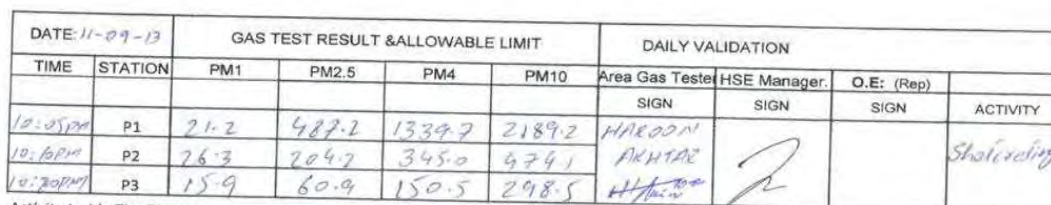 DATE: 11-09-13 GAS TEST RESULT &ALLOWABLE LIMIT DAILY VALIDATION
TIME STATION PM1 PM2.5 PM4 PM10 Area Gas Tester HSE Manager. O.E: (Rep)
SIGN SIGN SIGN ACTIVITY
10:05PM P1 21.2 487.2 1339.7 2189.2 HAROON
P2 26.3 204.2 345.0 474.1 AKHTAR
P3 15.9 60.9 150.5 298.5